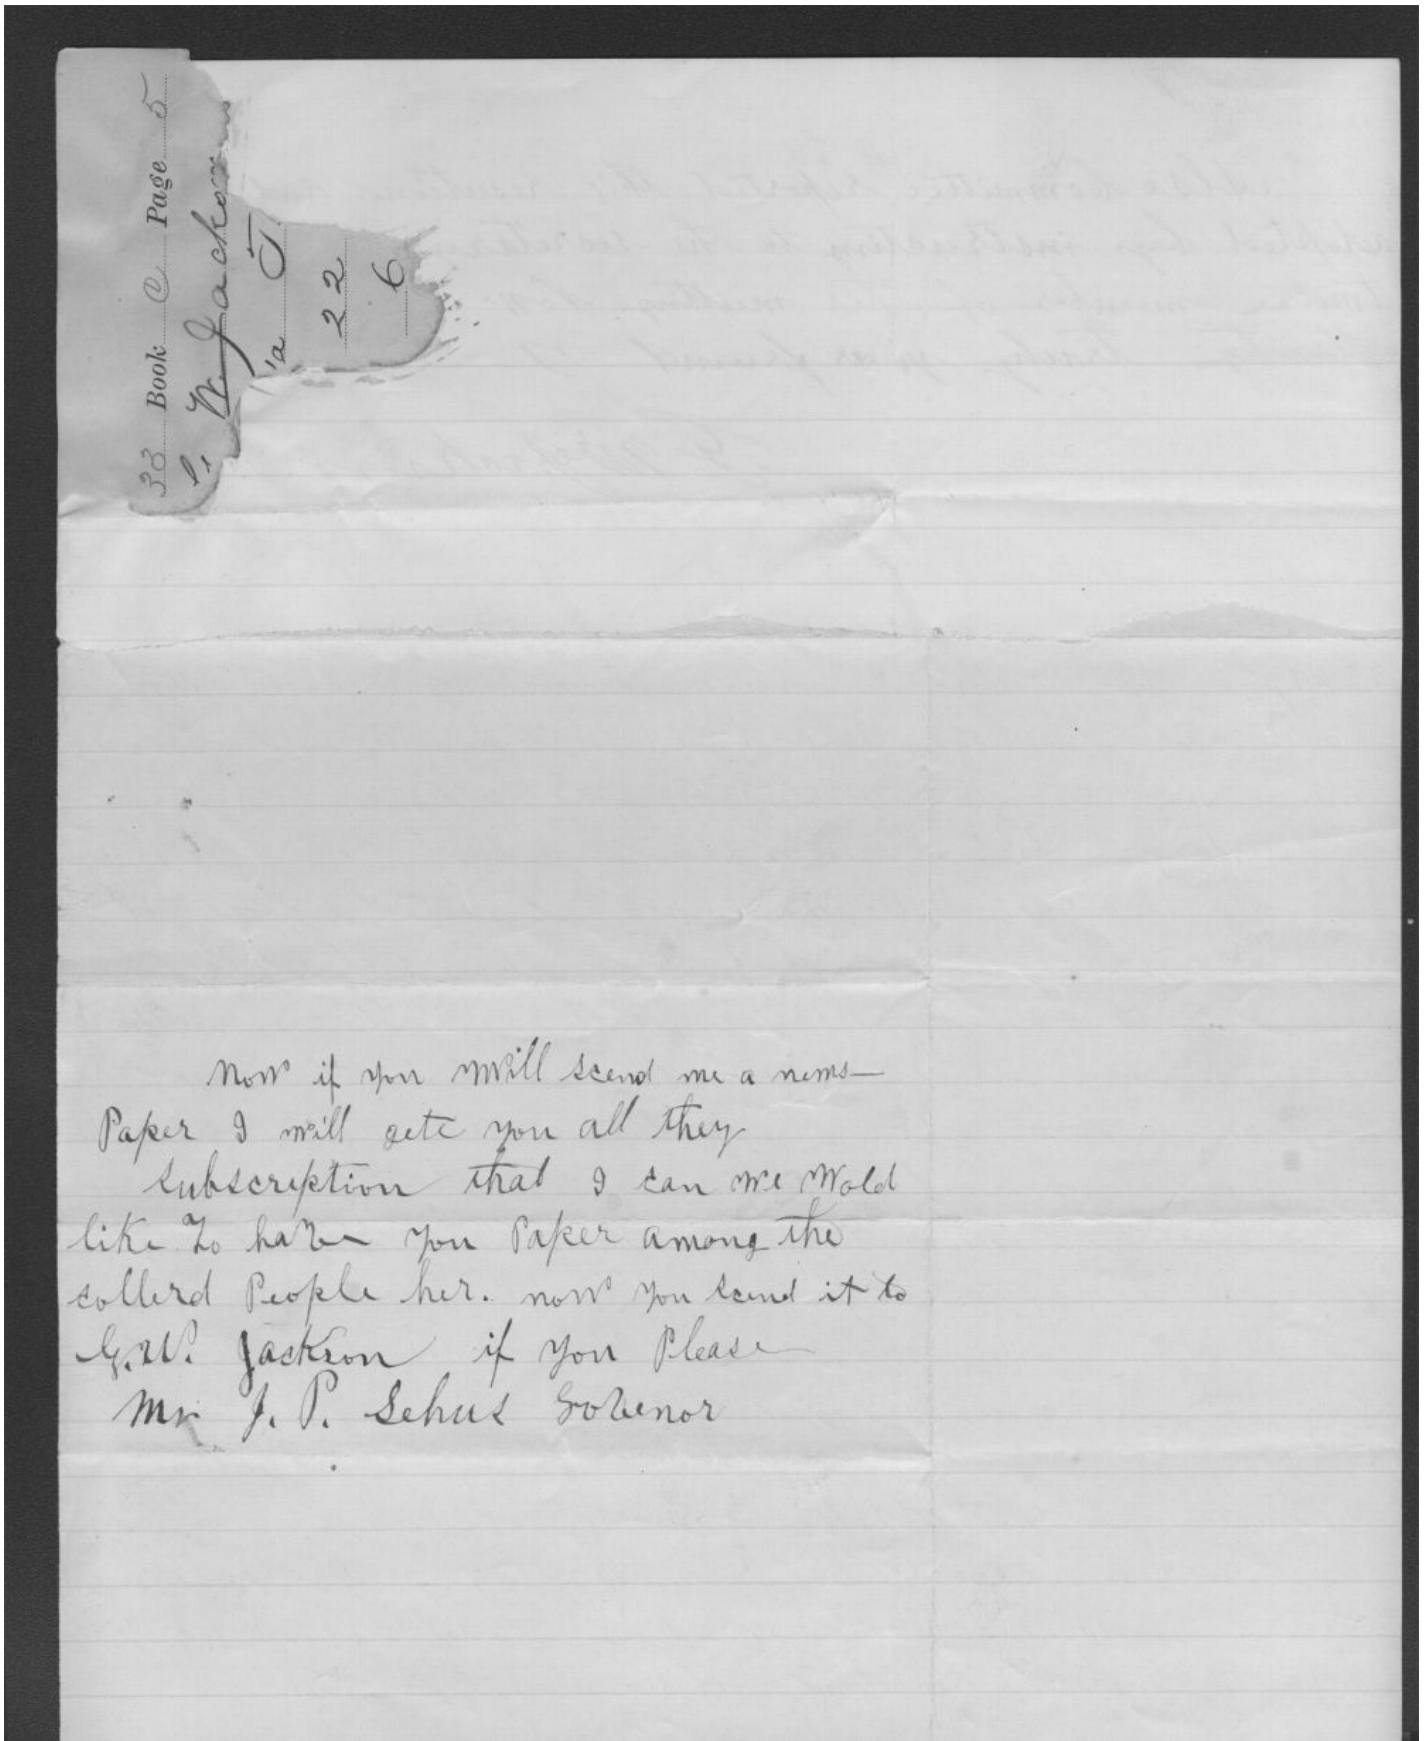 33 Book C Page 5
W. Jackson
'a J.
22
6
Now if you will scend me a news—
Paper I will gete you all they
subscription that I can we Wold
like to have you Paper among the
collerd People her. now you scend it to
G.W. Jackson if you Please
Mr J. P. Sehus Govenor